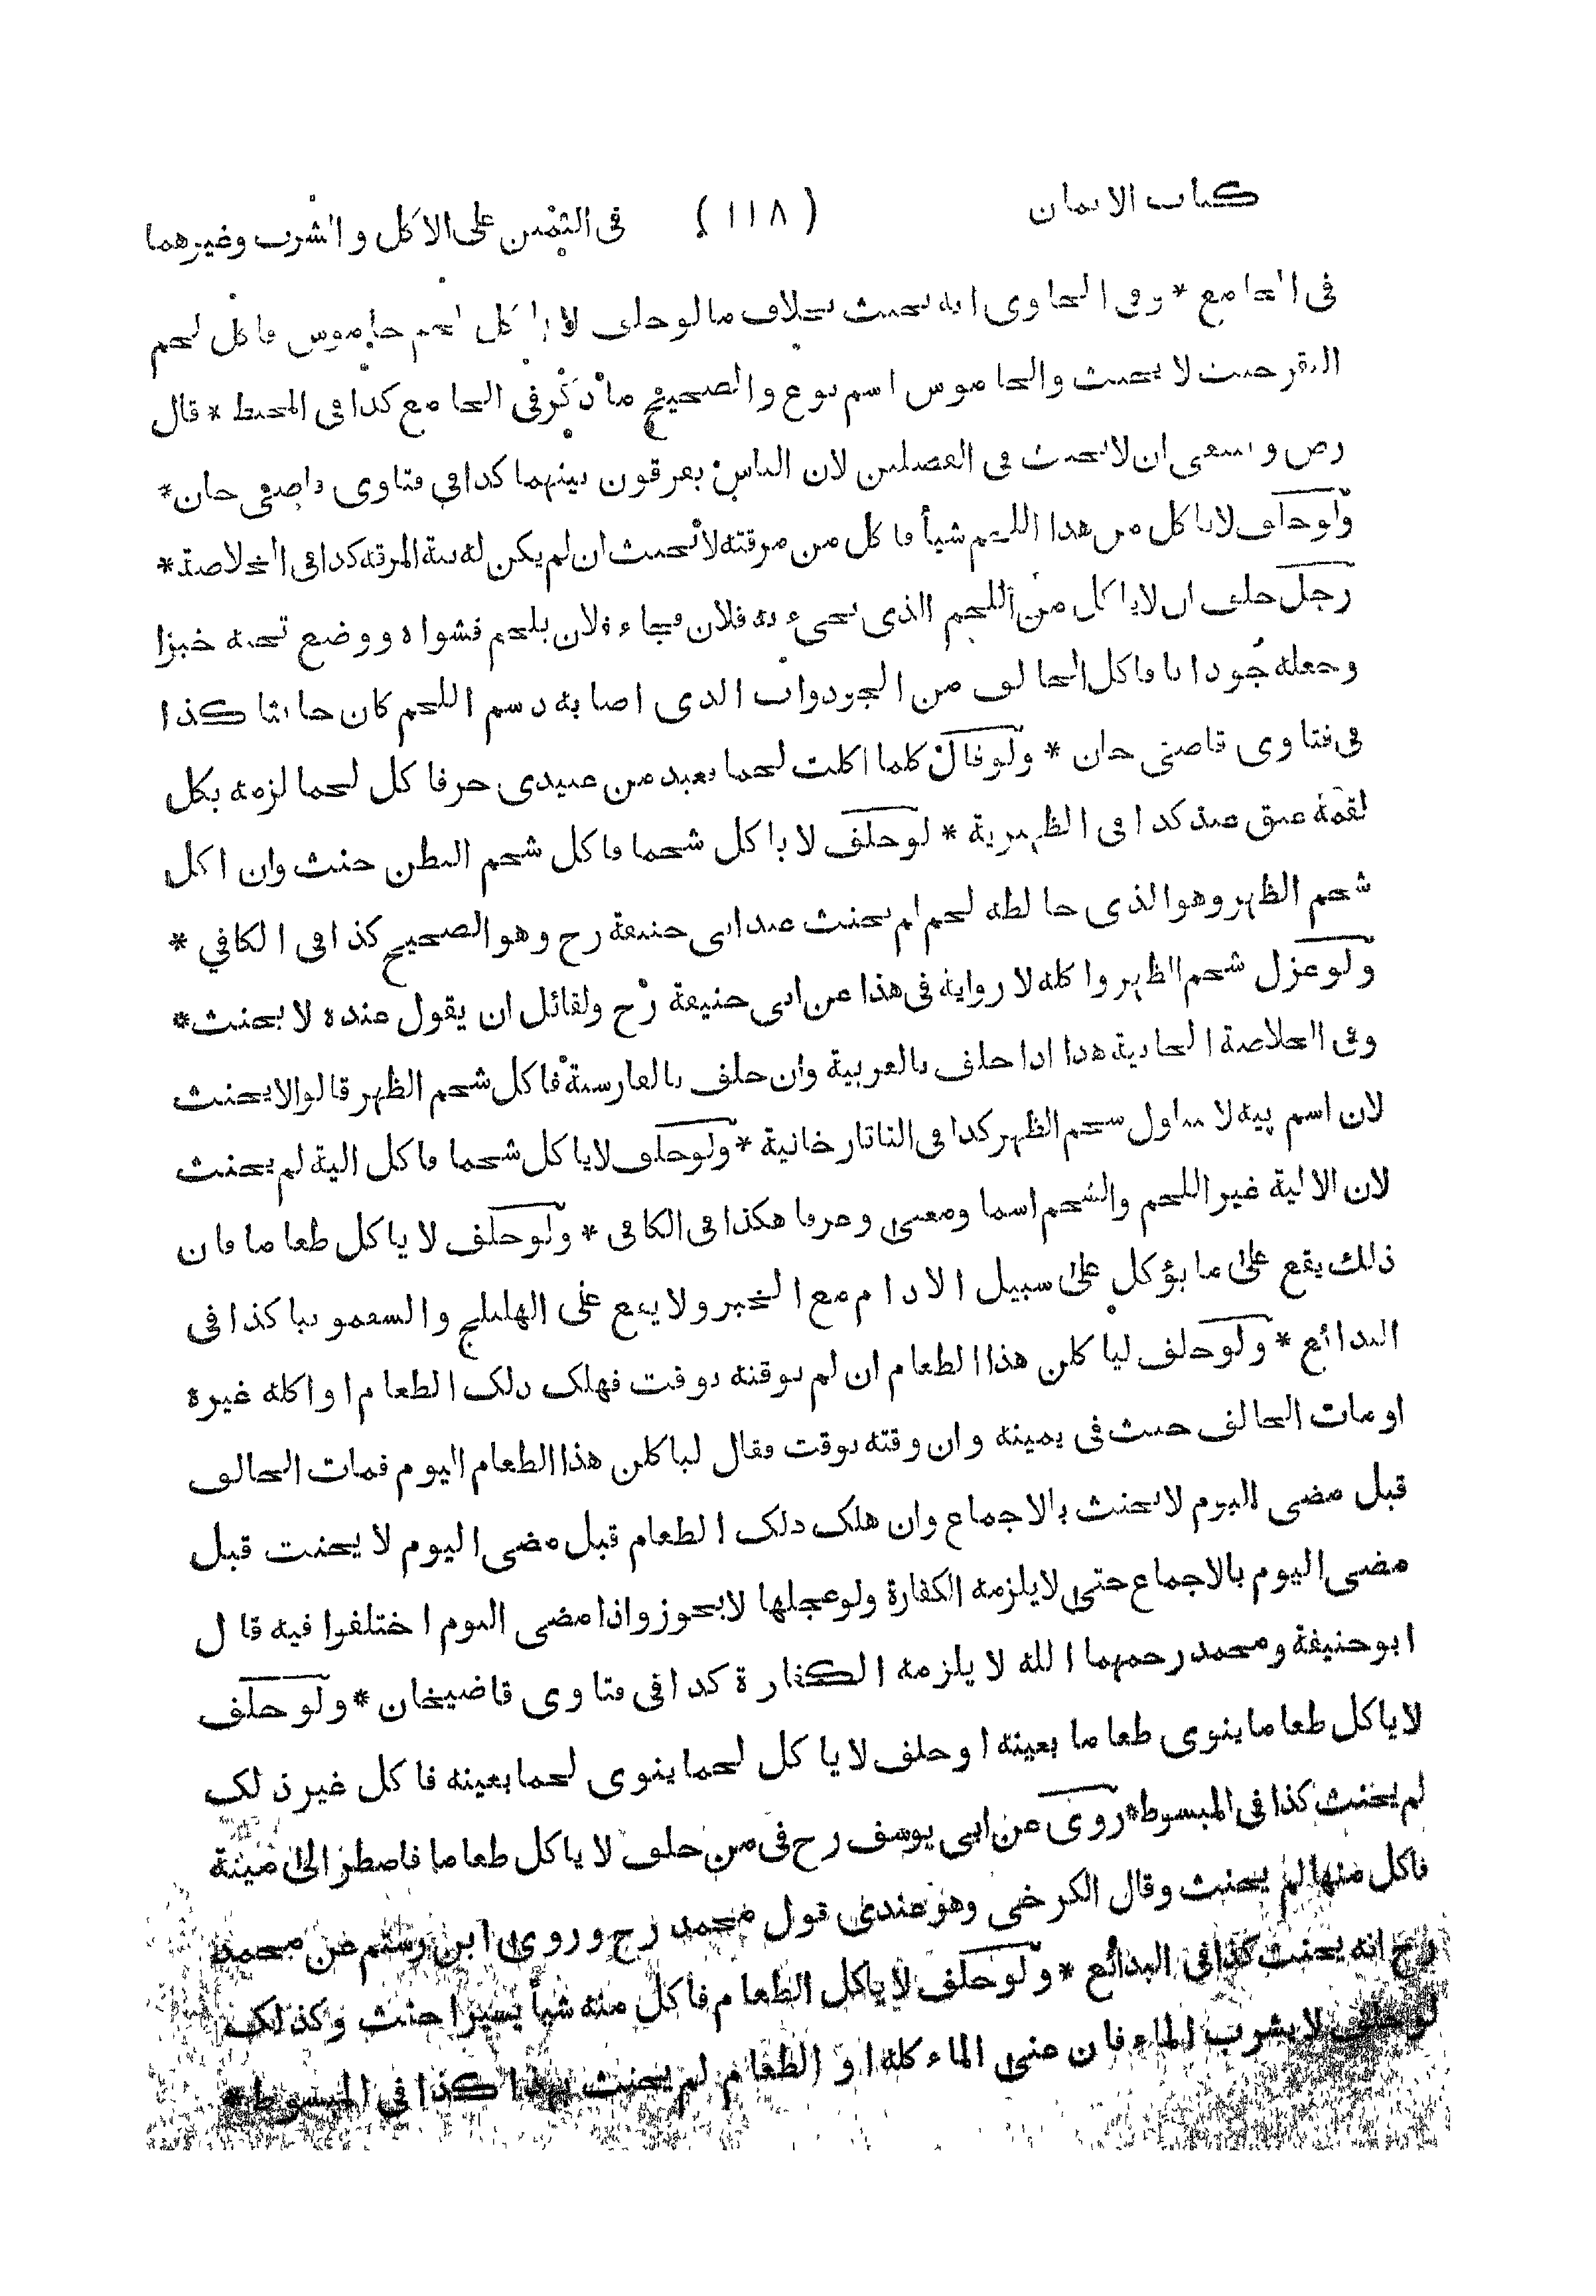 كتاب الايمان (١١٨) فى اليمين على الاكل والشرب وغيرهما
فى الجامع * وفى الحاوى انه يحنث بخلاف مالو حلف لا يأكل لحم جاموس فاكل لحم
البقر حيث لا يحنث والجاموس اسم نوع والصحيح ما ذكر فى الجامع كذا فى المحيط * قال
رض وينبغى ان لا يحنث فى الفصلين لان الناس يفرقون بينهما كذا فى فتاوى قاضى خان *
ولو حلف لا ياكل من هذا اللحم شيأ فاكل من مرقته لا يحنث ان لم يكن له نية المرقة كذا فى الخلاصة *
رجل حلف ان لا ياكل من اللحم الذى يجىء به فلان فجاء فلان بلحم فشواه ووضع تحته خبزا
وجعله جودابا فاكل الحالف من الجوذاب الذى اصابه دسم اللحم كان حانثا كذا
فى فتاوى قاضى خان * ولو قال كلما اكلت لحما فعبد من عبيدى حر فاكل لحما لزمه بكل
لقمة عتق عبد كذا فى الظهيرية * لو حلف لا ياكل شحما فاكل شحم البطن حنث وان اكل
شحم الظهر وهو الذى خالطه لحم لم يحنث عند ابى حنيفة رح وهو الصحيح كذا فى الكافي *
ولو عزل شحم الظهر واكله لا رواية فى هذا عن ابى حنيفة رح ولقائل ان يقول عنده لا يحنث *
وفى الخلاصة الخانية هذا اذا حلف بالعربية وان حلف بالفارسية فاكل شحم الظهر قالوا لا يحنث
لان اسم پيه لا يتناول شحم الظهر كذا فى التاتارخانية * ولو حلف لا ياكل شحما فاكل الية لم يحنث
لان الالية غير اللحم والشحم اسما ومعنى وعرفا هكذا فى الكافى * ولو حلف لا ياكل طعاما فان
ذلك يقع على ما يؤكل على سبيل الادام مع الخبز ولا يقع على الهليلج والسقمونيا كذا فى
البدائع * ولو حلف لياكلن هذا الطعام ان لم يوقته بوقت فهلك ذلك الطعام او اكله غيره
او مات الحالف حنث فى يمينه وان وقته بوقت فقال لياكلن هذا الطعام اليوم فمات الحالف
قبل مضى اليوم لا يحنث بالاجماع وان هلك ذلك الطعام قبل مضى اليوم لا يحنث قبل
مضى اليوم بالاجماع حتى لا يلزمه الكفارة ولو عجلها لا يجوز واذا مضى اليوم اختلفوا فيه قال
ابو حنيفة ومحمد رحمهما الله لا يلزمه الكفارة كذا فى فتاوى قاضيخان * ولو حلف
لا ياكل طعاما ينوى طعاما بعينه او حلف لا ياكل لحما ينوى لحما بعينه فاكل غير ذلك
لم يحنث كذا فى المبسوط * روى عن ابى يوسف رح فى من حلف لا ياكل طعاما فاضطر الى ميتة
فاكل منها لم يحنث وقال الكرخى وهو عندى قول محمد رح وروى ابن رستم عن محمد
رح انه يحنث كذا فى البدائع * ولو حلف لا ياكل الطعام فاكل منه شيأ يسيرا حنث وكذلك
لو حلف لا يشرب الماء فان عنى الماء كله او الطعام لم يحنث بهذا كذا فى المبسوط *